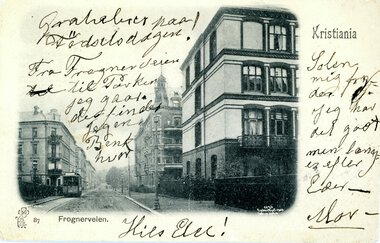 Gratulerer paa
Födselsdagen!
Fra Frognerveien
til Parken
jeg gaar
det findes
ingen
Benk
hvor
Kristiania
Solen
mig
jeg har
det godt
men længes
efter
Eder
Mor
87 Frognerveien.
Hils Else!